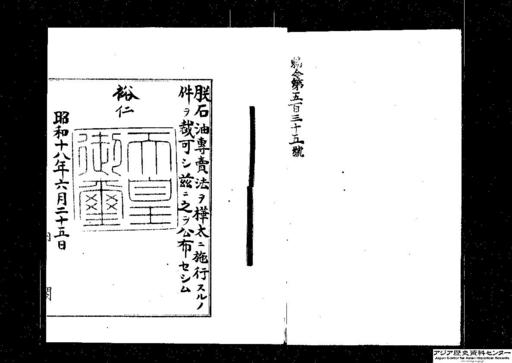 勅令第五百三十五號
朕石油專賣法ヲ樺太ニ施行スルノ
件ヲ裁可シ茲ニ之ヲ公布セシム
裕仁
天皇
御璽
昭和十八年六月二十五日
アジア歴史資料センター
Japan Center for Asian Historical Records